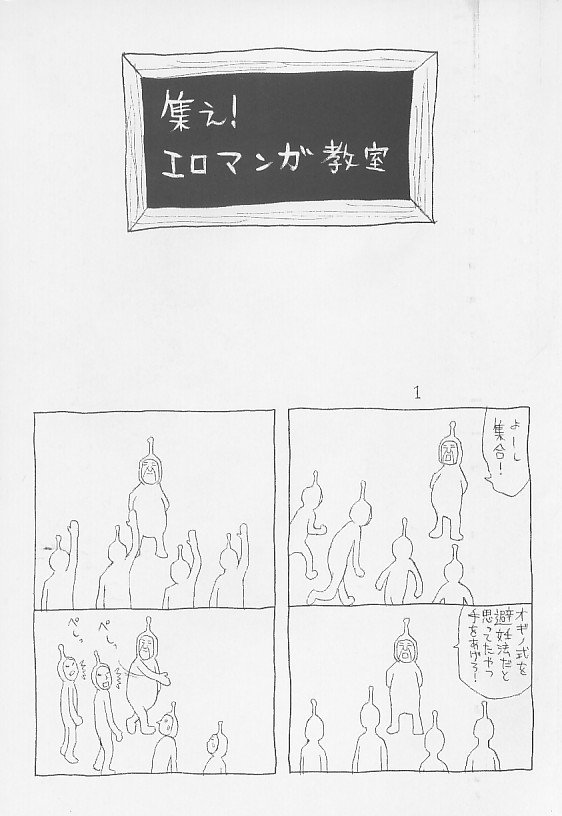 集え!
エロマンガ教室
1
よーし
集合!
オギノ式を
避妊法だと
思ってたやつ
手をあげろ!
ぺしっ
ぺしっ